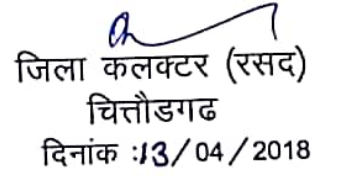 जिला कलक्टर (रसद)
चित्तौडगढ
दिनांक :13/04/2018